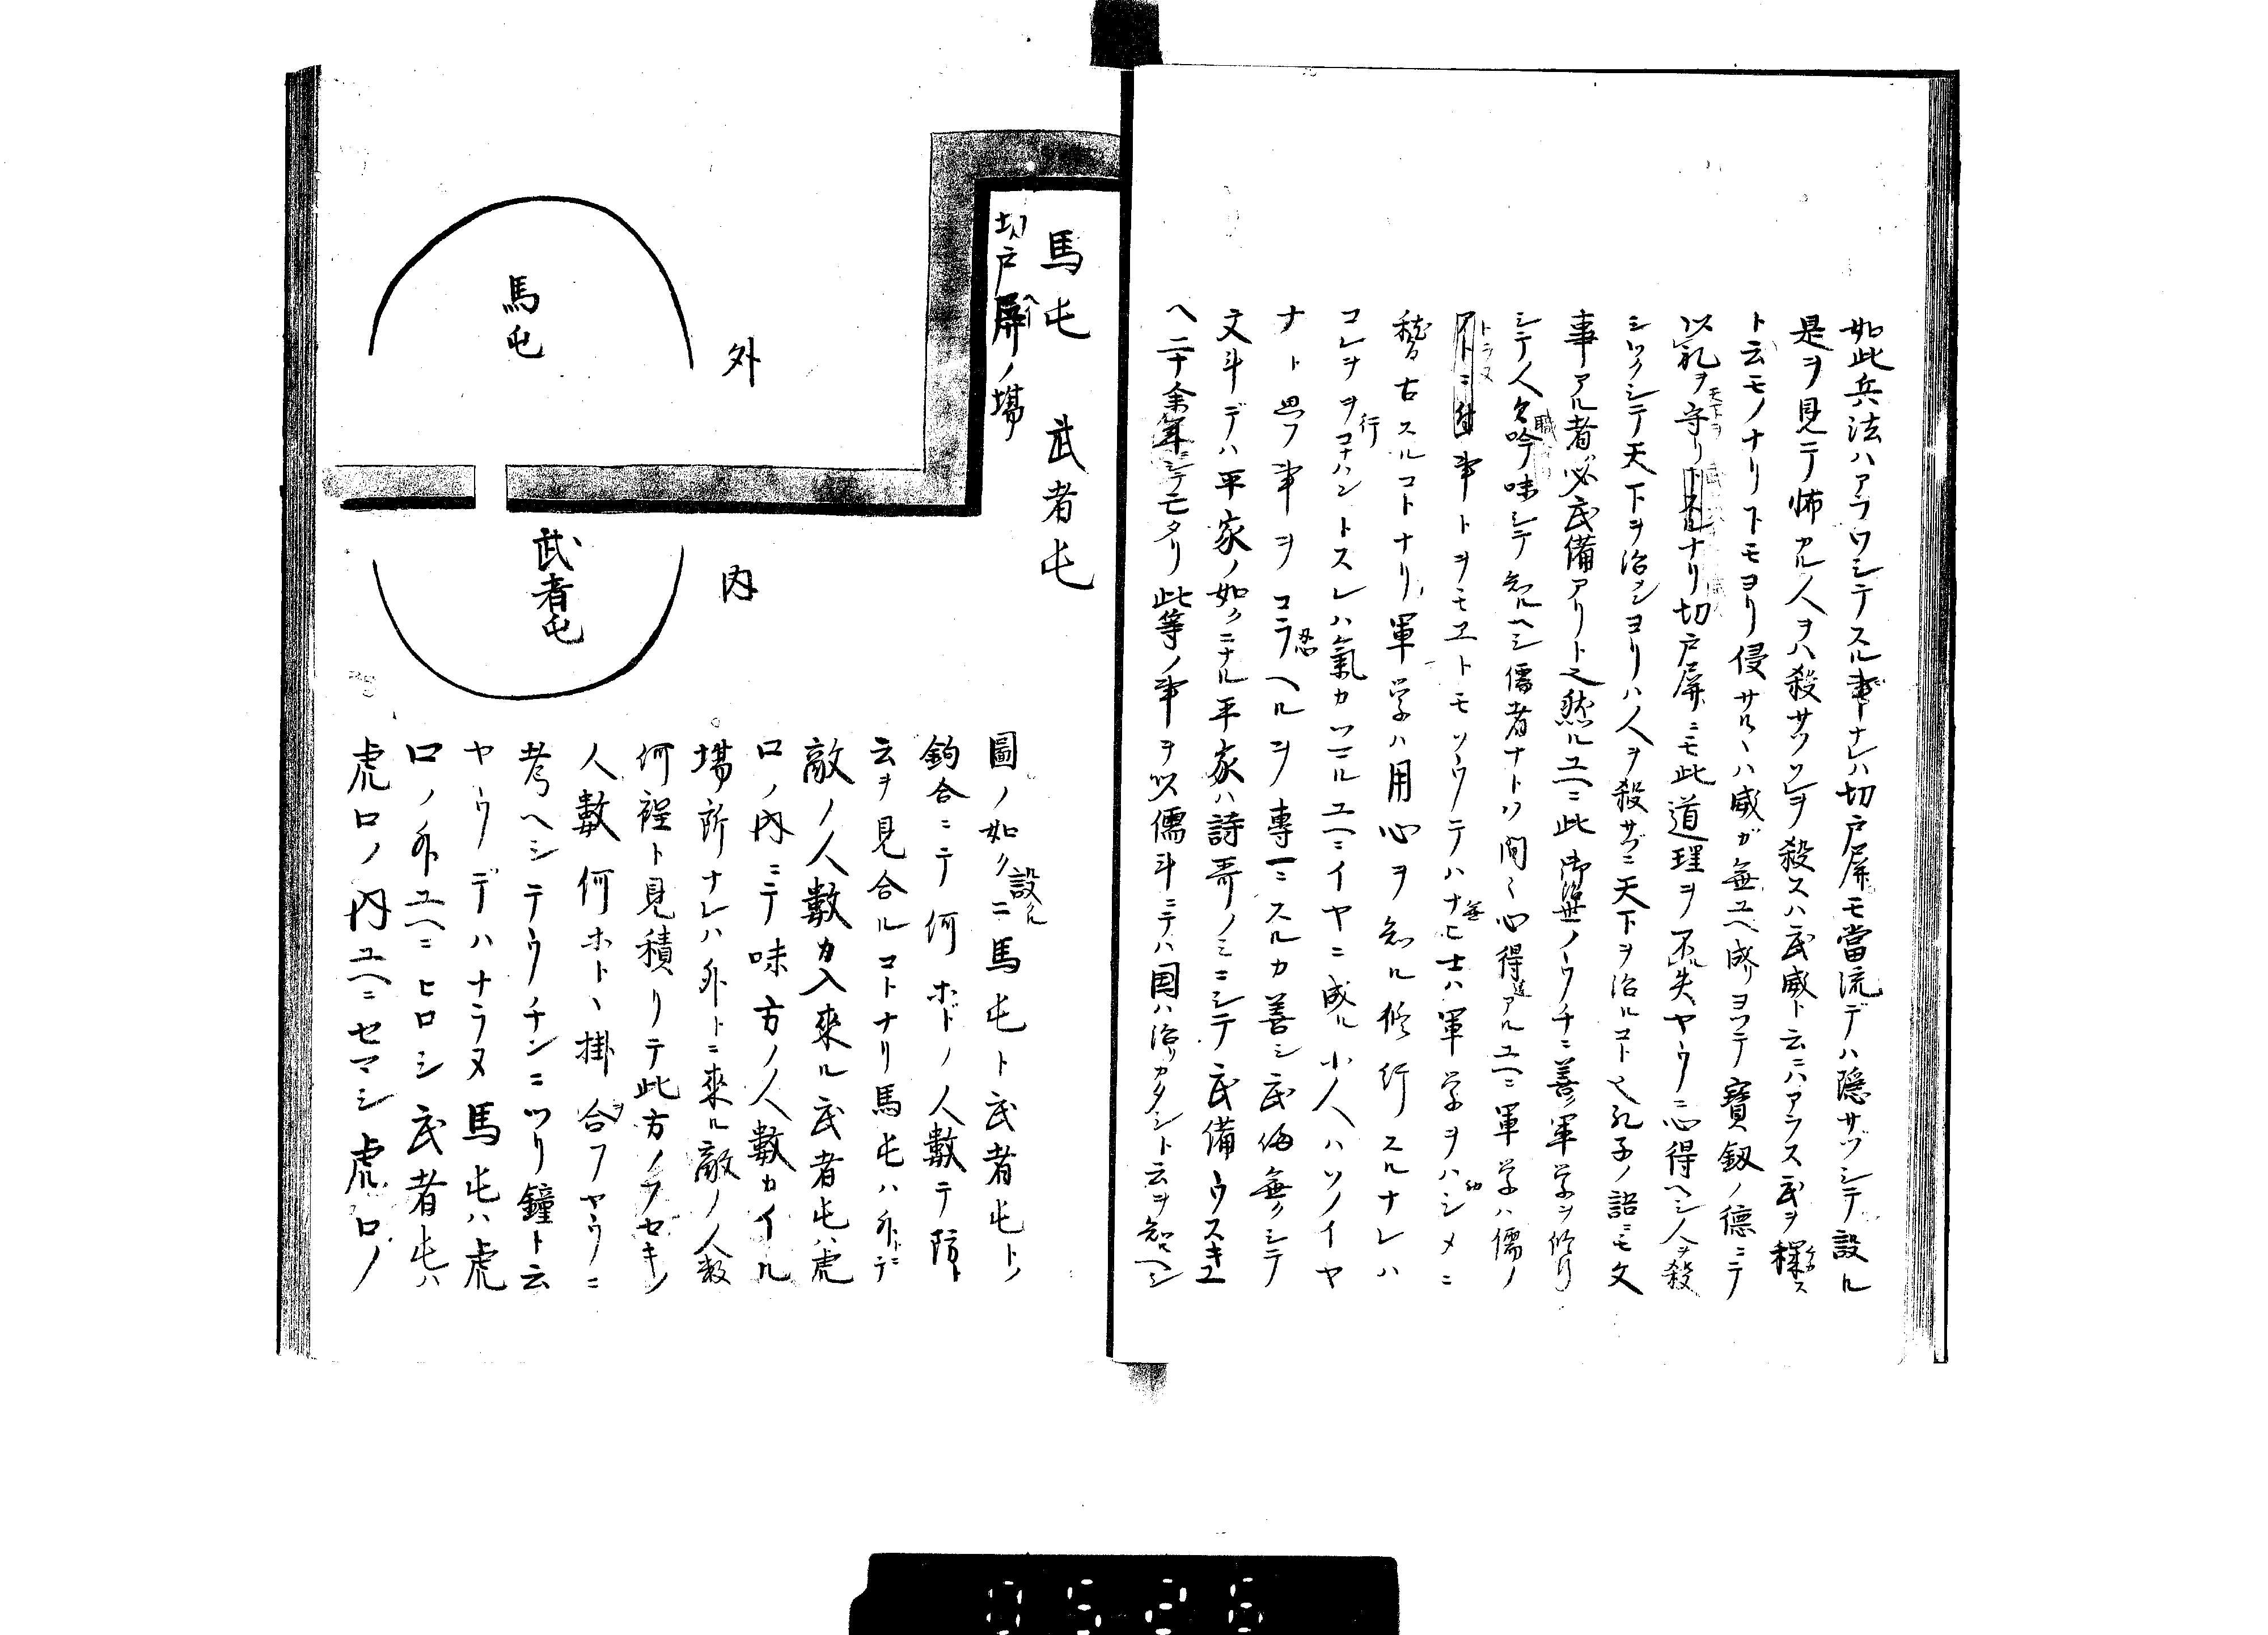 如此兵法ハアラワシテスル事ナレハ切戸屏モ當流デハ隠サヅシテ設ル
是ヲ見テ怖カル人ヲハ殺サヅシヲ殺スハ武威ト云ニハアラス武ヲ釋ス
ト云モノナリ下モヨリ侵サルヽハ威ガ無ユヘ成リヨツテ寶釼ノ德ニテ
以乱ヲ守リ ナリ切戸屏ニモ此道理ヲ不失ヤウニ心得ヘシ人ヲ殺
シツクシテ天下ヲ治ンヨリハ人ヲ殺サヅニ天下ヲ治ルコト也孔子ノ語ニモ文
事アル者必武備アリト之然ルユヘニ此御治世ノウチニ善軍学ヲ修行
シテ人々吟味シテ知ルヘシ儒者ナトハ間々心得違アルユヘニ軍学ハ儒ノ
事トヲモヱトモソウテハナヒ士ハ軍学ヲハシメニ
稽古スルコトナリ軍学ハ用心ヲ知ル修行スルナレハ
コレヲヲコナハントスレハ氣カツマルユヘニイヤニ成ル小人ハソノイヤ
ナト思フ事ヲコラヘルヲ專一ニスルカ善シ武備無クシテ
文斗デハ平家ノ如クニナル平家ハ詩哥ノミニシテ武備ウスキユ
ヘ二十余年ニシテモタリ此等ノ事ヲ以儒斗ニテハ国ハ治リカタシト云ヲ知ヘシ
馬屯 武者屯
切戸屏ノ場
外
馬屯
内
武者屯
圖ノ如クニ設ル馬屯ト武者屯トノ
釣合ニテ何ホドノ人數テ防ト
云ヲ見合ルコトナリ馬屯ハ外ニテ
敵ノ人數カ入來ル武者屯ハ虎
口ノ内ニテ味方ノ人數カイル
場所ナレハ外トニ來ル敵ノ人数
何程ト見積リテ此方ノフセキノ
人數何ホトヽ掛合フヤウニ
考ヘシテウチンニツリ鐘ト云
ヤウデハナラヌ馬屯ハ虎
口ノ外ユヘニヒロシ武者屯ハ
虎口ノ内ユヘニセマシ虎口ノ